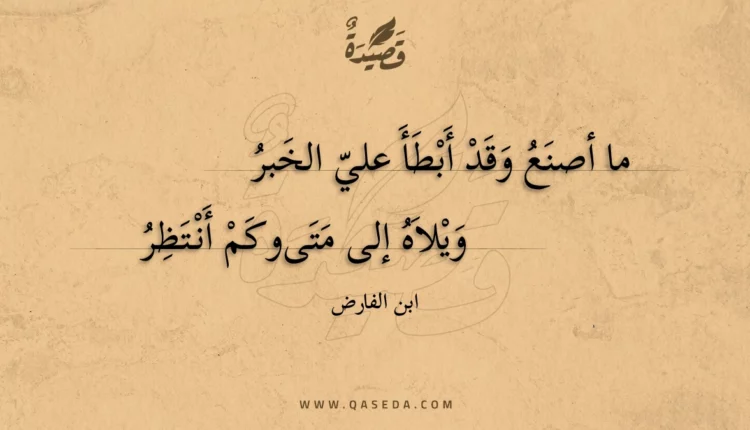 قَصِيدَةٌ
ما أصنَعُ وَقَدْ أَبْطَأَ عليّ الخَبرُ
وَيْلاَهُ إلى مَتَى وكَمْ أَنْتَظِرُ
ابن الفارض
WWW.QASEDA.COM